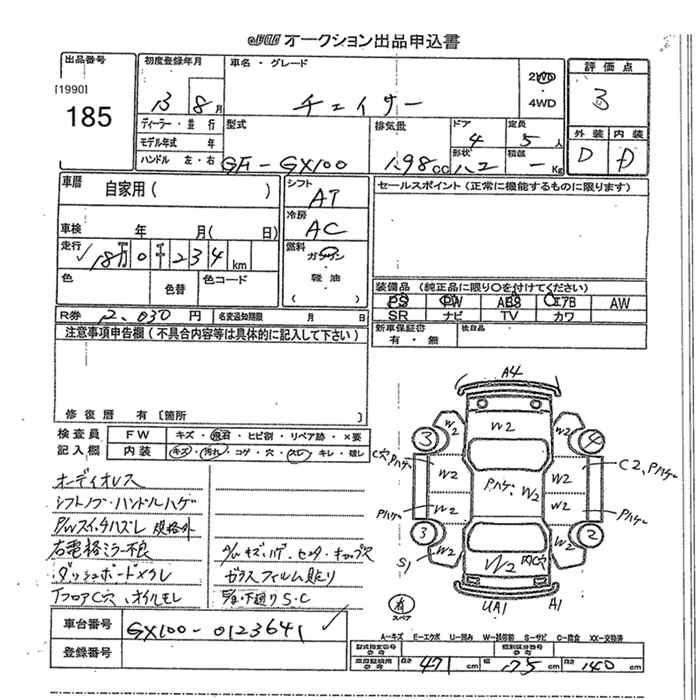 JU オークション出品申込書
出品番号
[1990]
185
初度登録年月
13 8月
車名・グレード
チェイサー
2WD
・4WD
評価点
3
ディーラー・並 行
モデル年式 年
ハンドル 左・右
型式
GF-GX100
排気量
1.98cc
ドア
4
定員
5人
形状
積載
- Kg
外装 内装
D D
車歴 自家用( )
車検 年 月( 日)
走行
18万0千234km
色 色替 色コード
シフト
AT
冷房
AC
燃料
ガソリン
・
軽油
( )
セールスポイント(正常に機能するものに限ります)
装備品(純正品に限り○を付けてください)
PS PW ABS エアB AW
SR ナビ TV カワ
R券 12.030円 名変通知期限 月 日
新車保証書 後日品
有・無
注意事項申告欄(不具合内容等は具体的に記入して下さい)
修復歴 有〔箇所 〕
検査員 FW キズ・飛石・ヒビ割・リペア跡・×要
記入欄 内装 キズ・汚れ・コゲ・穴・スレ・キレ・破レ
オーディオレス
シフトノブ・ハンドルハゲ
P/Wスイッチハズレ 規格外
右電格ミラー不良
ダッシュボードメクレ
TフロアC穴、オイルモレ
ガラスフィルム貼り
下廻りS・C
A4
W2
W2 W2
3 4
C穴 Pハゲ W2 W2 C2、Pハゲ
Pハゲ W2
Pハゲ W2 W2 Pハゲ
3 2
W2 W2
S1 W2 内C穴
UA1 A1
有
スペア
車台番号 GX100-0123641
登録番号
A-キズ E-エクボ U-凹み W-補修跡 S-サビ C-腐食 XX-交換済
型式指定番号
参考
類別区分番号
参考
長さ 471cm 幅 175cm 高さ 140cm